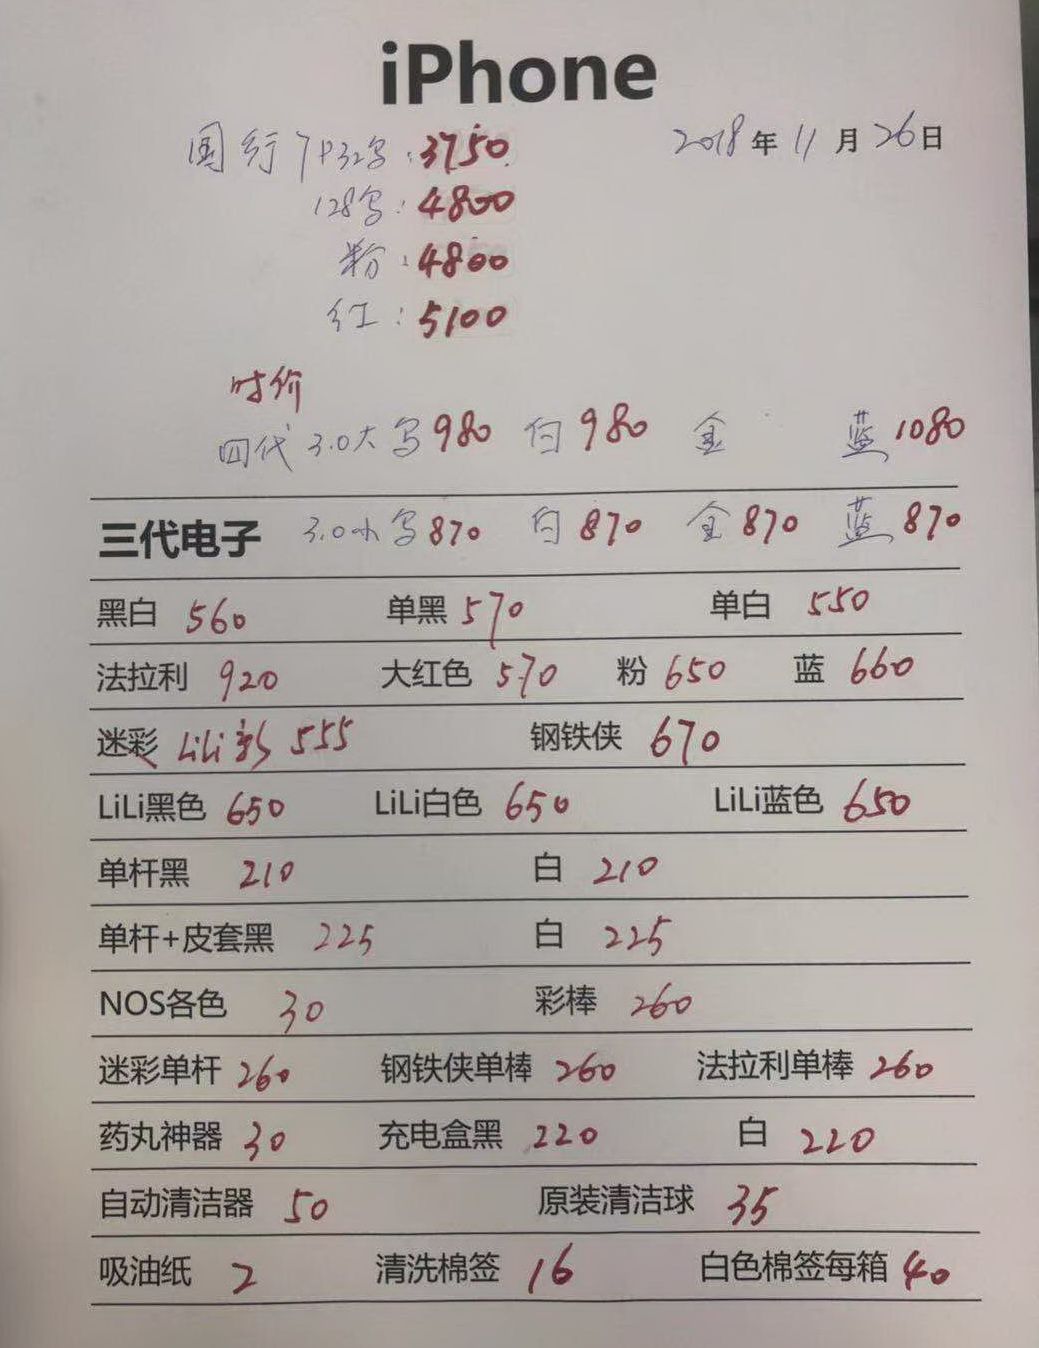 iPhone
国行7P32写:3750 2018年11月26日
128写:4800
粉:4800
红:5100
时价
四代 3.0大 写980 白980 金 蓝1080
三代电子 3.0小 写870 白870 金870 蓝870
黑白 560 单黑570 单白 550
法拉利 920 大红色 570 粉 650 蓝 660
迷彩 LiLi彩 555 钢铁侠 670
LiLi黑色 650 LiLi白色 650 LiLi蓝色 650
单杆黑 210 白 210
单杆+皮套黑 225 白 225
NOS各色 30 彩棒 260
迷彩单杆 260 钢铁侠单棒 260 法拉利单棒 260
药丸神器 30 充电盒黑 220 白 220
自动清洁器 50 原装清洁球 35
吸油纸 2 清洗棉签 16 白色棉签每箱 40